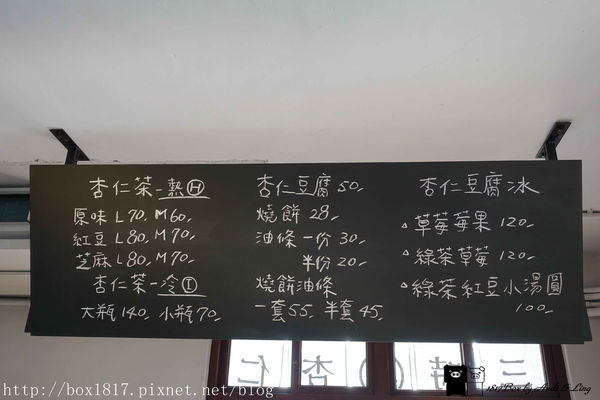 杏仁茶-熱Ⓗ
原味 L70, M60,
紅豆 L80, M70,
芝麻 L80, M70,
杏仁茶-冷Ⓘ
大瓶140, 小瓶70,
杏仁豆腐 50,
燒餅 28,
油條 一份 30,
半份 20,
燒餅油條
一套55, 半套45,
杏仁豆腐冰
△草莓莓果 120,
△綠茶草莓 120,
△綠茶紅豆小湯圓
100,
仁 杏
http://box1817.pixnet.net/blog